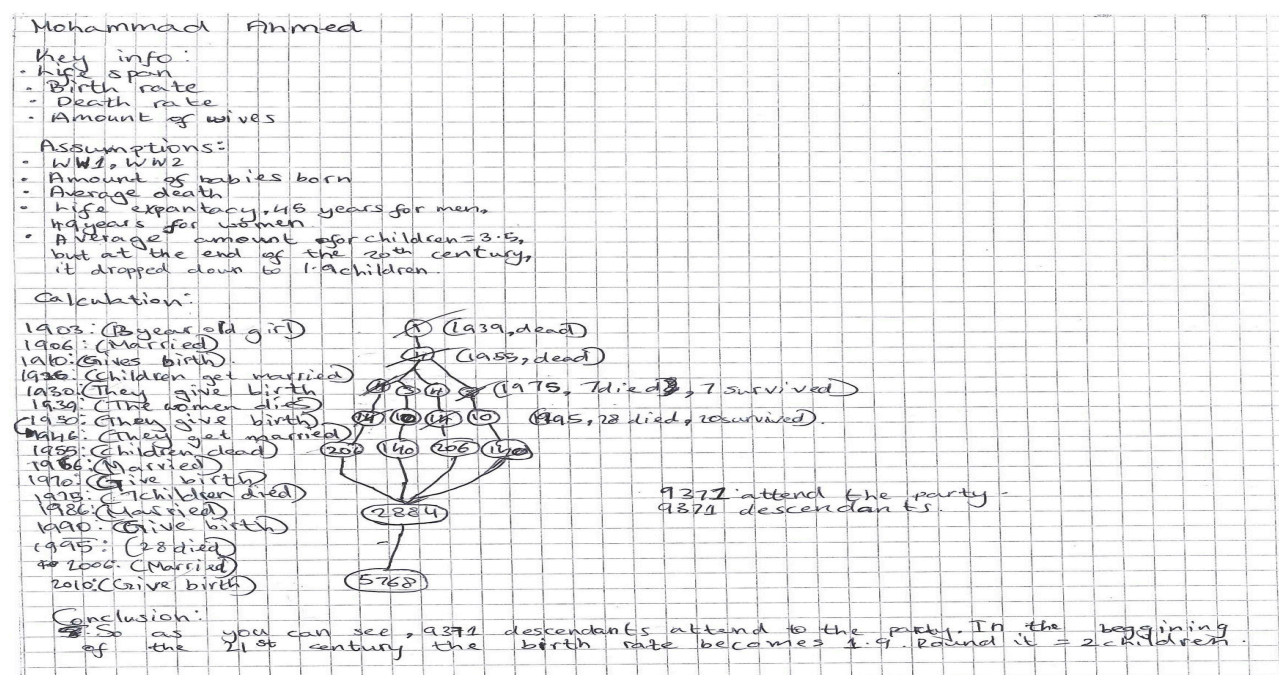 Mohammad Ahmed
Key info:
· Life span
· Birth rate
- Death rate
· Amount of wives
Assumptions:
- WW1, WW2
- Amount of babies born
- Average death
· Life expantacy, 45 years for men,
49 years for women
· Average amount for children = 3.5,
but at the end of the 20th century,
it dropped down to 1.9 children.
Calculation:
1903: (13 year old girl)
1906: (Married)
1910: (Gives birth)
(Children get married)
1930: (They give birth
1939: (The women dies)
1950: (They give birth)
1946: (They get married)
1955: (Children dead)
1966: (Married)
1970: (Give birth)
1975: (7 children died)
1986: (Married)
1990: (Give birth)
1995: (28 died)
2006: (Married)
2010: (Give birth)
(1939, dead)
(1955, dead)
(1975, 7 died, 7 survived)
14 14 10 (1995, 28 died, 20 survived).
206 140 206 140
2884
5768
9371 attend the party -
9371 descendants.
Conclusion:
So as you can see, 9371 descendants attend to the party. In the beggining
of the 21st century the birth rate becomes 1.9. Round it = 2 children.